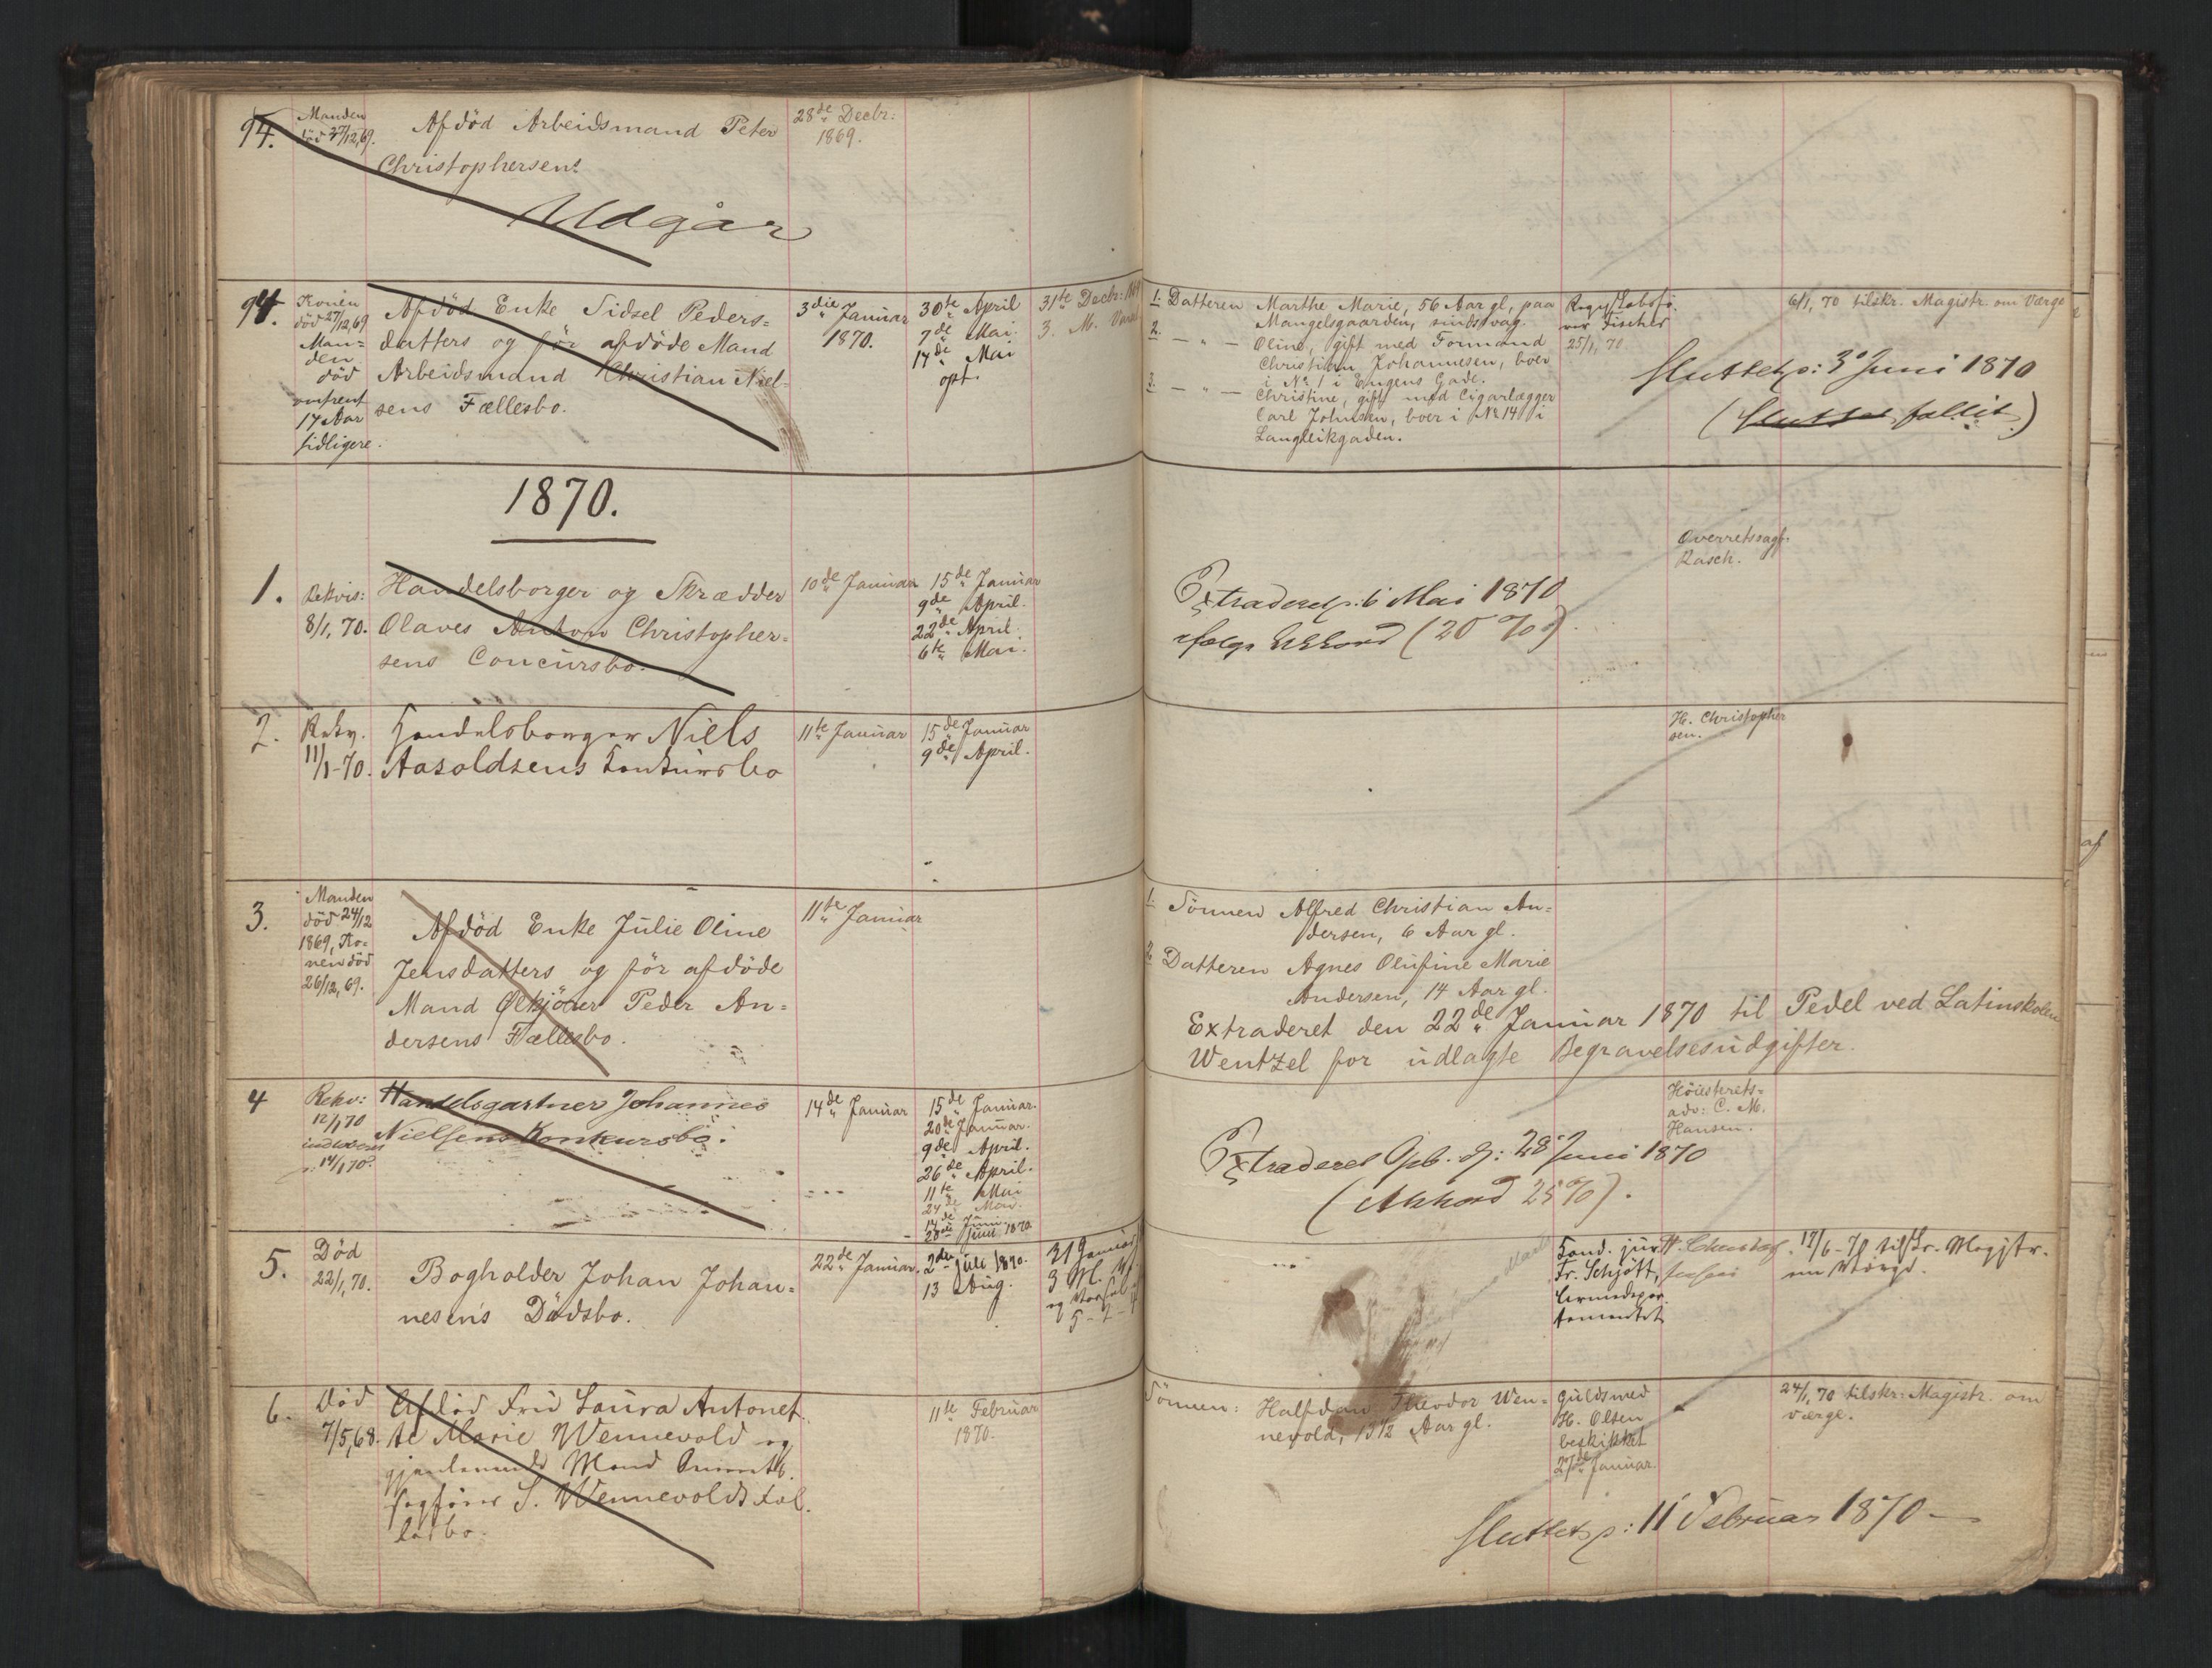 94.
Manden
død 27/12,69.
Afdød Arbeidsmand Peter
Christophersens
Udgår
28de Decbr:
1869.
94.
Konen
død 27/12,69
Man=
den
død
omtrent
17 Aar
tidligere.
Afdød Enke Sidsel Peders=
datters og før afdøde Mand
Arbeidsmand Christian Niel=
sens Fællesbo.
3die Januar
1870.
30te April
7de Mai.
14de Mai
opt.
31te Decbr: 1869
3. M. Varsel
1. Datteren Marthe Marie, 56 Aar gl, paa
Mangelsgaarden, sindssvag.
2. — " — Oline, gift med Formand
Christian Johannesen, boer
i No 1 i Engens Gade.
3. — " — Christine, gift med Cigarlægger
Carl Johnsen, boer i No 14 i
Langleikgaden.
Fischer
25/1, 70
6/1, 70 tilskr. Magistr. om Værge
Sluttet p: 3 Juni 1870
(Sluttet fallit.)
1870.
1.
Rekvis:
8/1, 70.
Handelsborger og Skrædder
Olaves Anton Christopher=
sens Concursbo.
10de Januar
15de Januar
9de April.
22de April.
6te Mai.
Extraderet p: 6 Mai 1870
ifølge Akkord (20 %).
Overretssagf.
Rasch.
2.
Rekv.
11/1-70.
Handelsborger Niels
Aasoldsens Konkursbo
11te Januar
15de Januar
9de April.
H. Christopher
sen.
3.
Manden
død 24/12
1869, Ko=
nen død
26/12, 69.
Afdød Enke Julie Oline
Jensdatters og før afdøde
Mand Ølkjører Peder An=
dersens Fællesbo.
11te Januar
1. Sønnen Alfred Christian An=
dersen, 6 Aar gl.
2. Datteren Agnes Olufine Marie
Andersen, 14 Aar gl.
Extraderet den 22de Januar 1870 til Pedel ved Latinskolen
Wentzel for udlagte Begravelsesudgifter.
4
Rekv:
12/1 70
14/1 70.
Handelsgartner Johannes
Nielsens Konkursbo.
14de Januar
15de Januar.
20de Januar.
9de April.
26de April.
11te Mai
24de Mai.
14de Juni.
28de Juni 1870
Extraderet Opb. d: 28 Juni 1870
(Akkord 25 %).
Høiesterets=
adv: C. M.
Hansen.
5.
Død
22/1, 70.
Bogholder Johan Johan=
nesens Dødsbo.
22de Januar.
2den Juli 1870.
13 Aug.
31 Januar
3 M.
Kand. jur.
Fr. Schjøtt,
17/6-70 tilskr. Magistr.
om Værge.
6.
Død
7/5,68.
Afdød Fru Laura Antonet
te Marie Wennevold og
gjenlevende Mand Overrets.
sagfører S. Wennevolds Fæl
lesbo.
11te Februar
1870.
Sønnen: Halfdan Theodor Wen=
nevold, 13 1/2 Aar gl.
Guldsmed
H. Olsen
beskikket
27de Januar.
24/1, 70 tilskr: Magistr. om
Værge.
Sluttet p: 11 Februar 1870 —